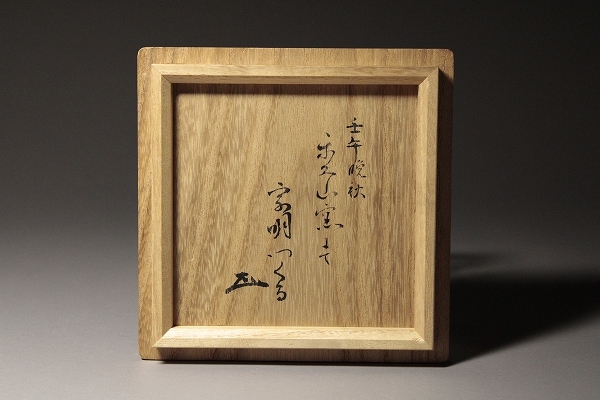 壬午晩秋
山窯にて
宗明つくる